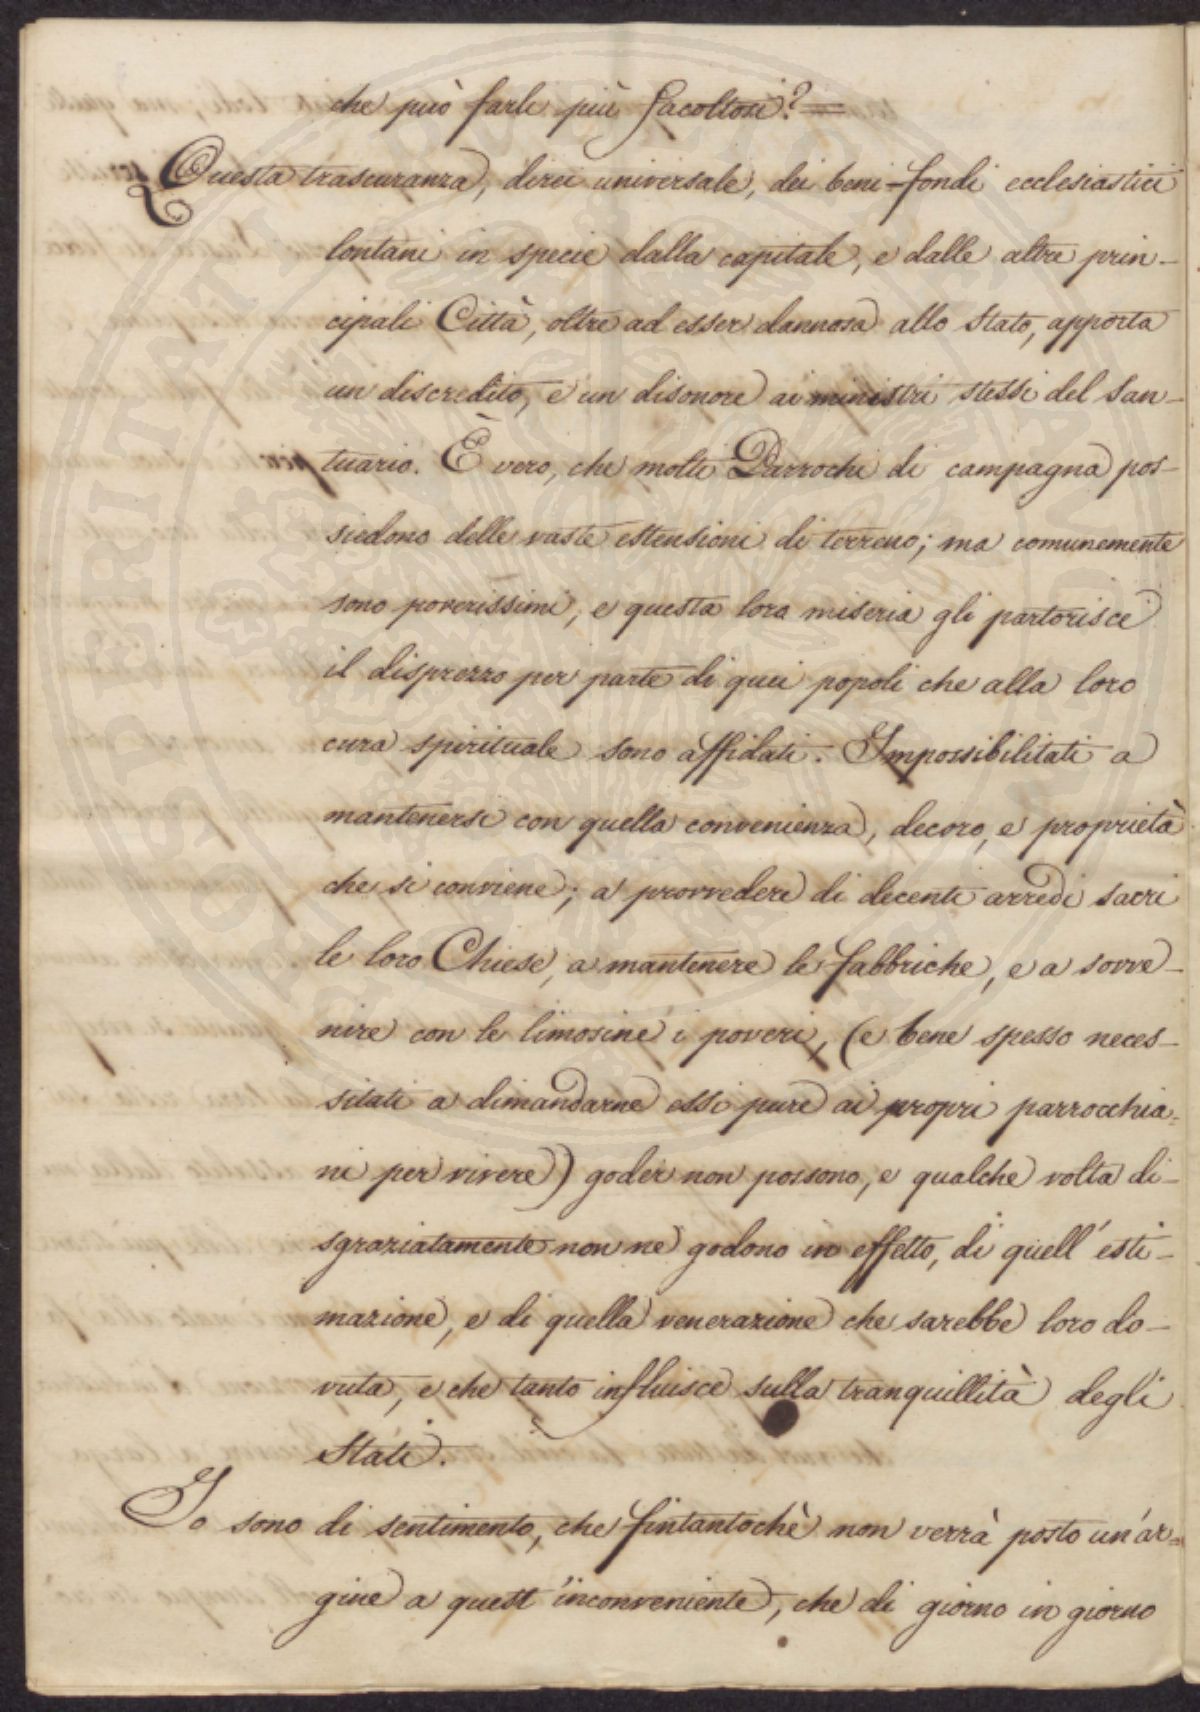 che può farli più facoltosi? =
Questa trascuranza, direi universale, dei beni-fondi ecclesiastici
lontani in specie dalla capitale, e dalle altre prin-
cipali Città, oltre ad esser dannosa allo Stato, apporta
un discredito, e un disonore ai ministri stessi del San-
tuario. È vero, che molti Parrochi di campagna pos-
siedono delle vaste estensioni di terreno; ma comunemente
sono poverissimi, e questa loro miseria gli partorisce
il disprezzo per parte di quei popoli che alla loro
cura spirituale sono affidati. Impossibilitati a
mantenersi con quella convenienza, decoro, e proprietà
che si conviene; a provvedere di decenti arredi sacri
le loro Chiese, a mantenere le fabbriche, e a sovve-
nire con le limosine i poveri, (e bene spesso neces-
sitati a dimandarne essi pure ai propri parrocchia-
ni per vivere) goder non possono, e qualche volta di-
sgraziatamente non ne godono in effetto, di quell' esti-
mazione, e di quella venerazione che sarebbe loro do-
vuta, e che tanto influisce sulla tranquillità degli
Stati.
Io sono di sentimento, che fintantochè non verrà posto un'ar-
gine a quest'inconveniente, che di giorno in giorno